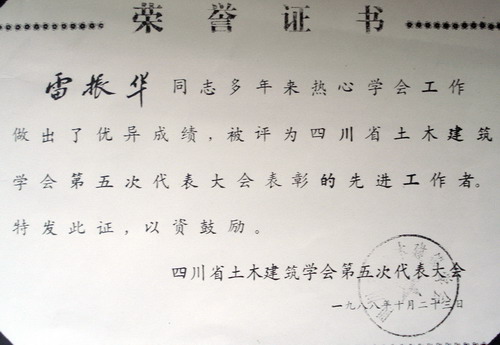 荣誉证书
雷振华 同志多年来热心学会工作
做出了优异成绩，被评为四川省土木建筑
学会第五次代表大会表彰的先进工作者。
特发此证，以资鼓励。
四川省土木建筑学会第五次代表大会
一九八八年十月二十三日